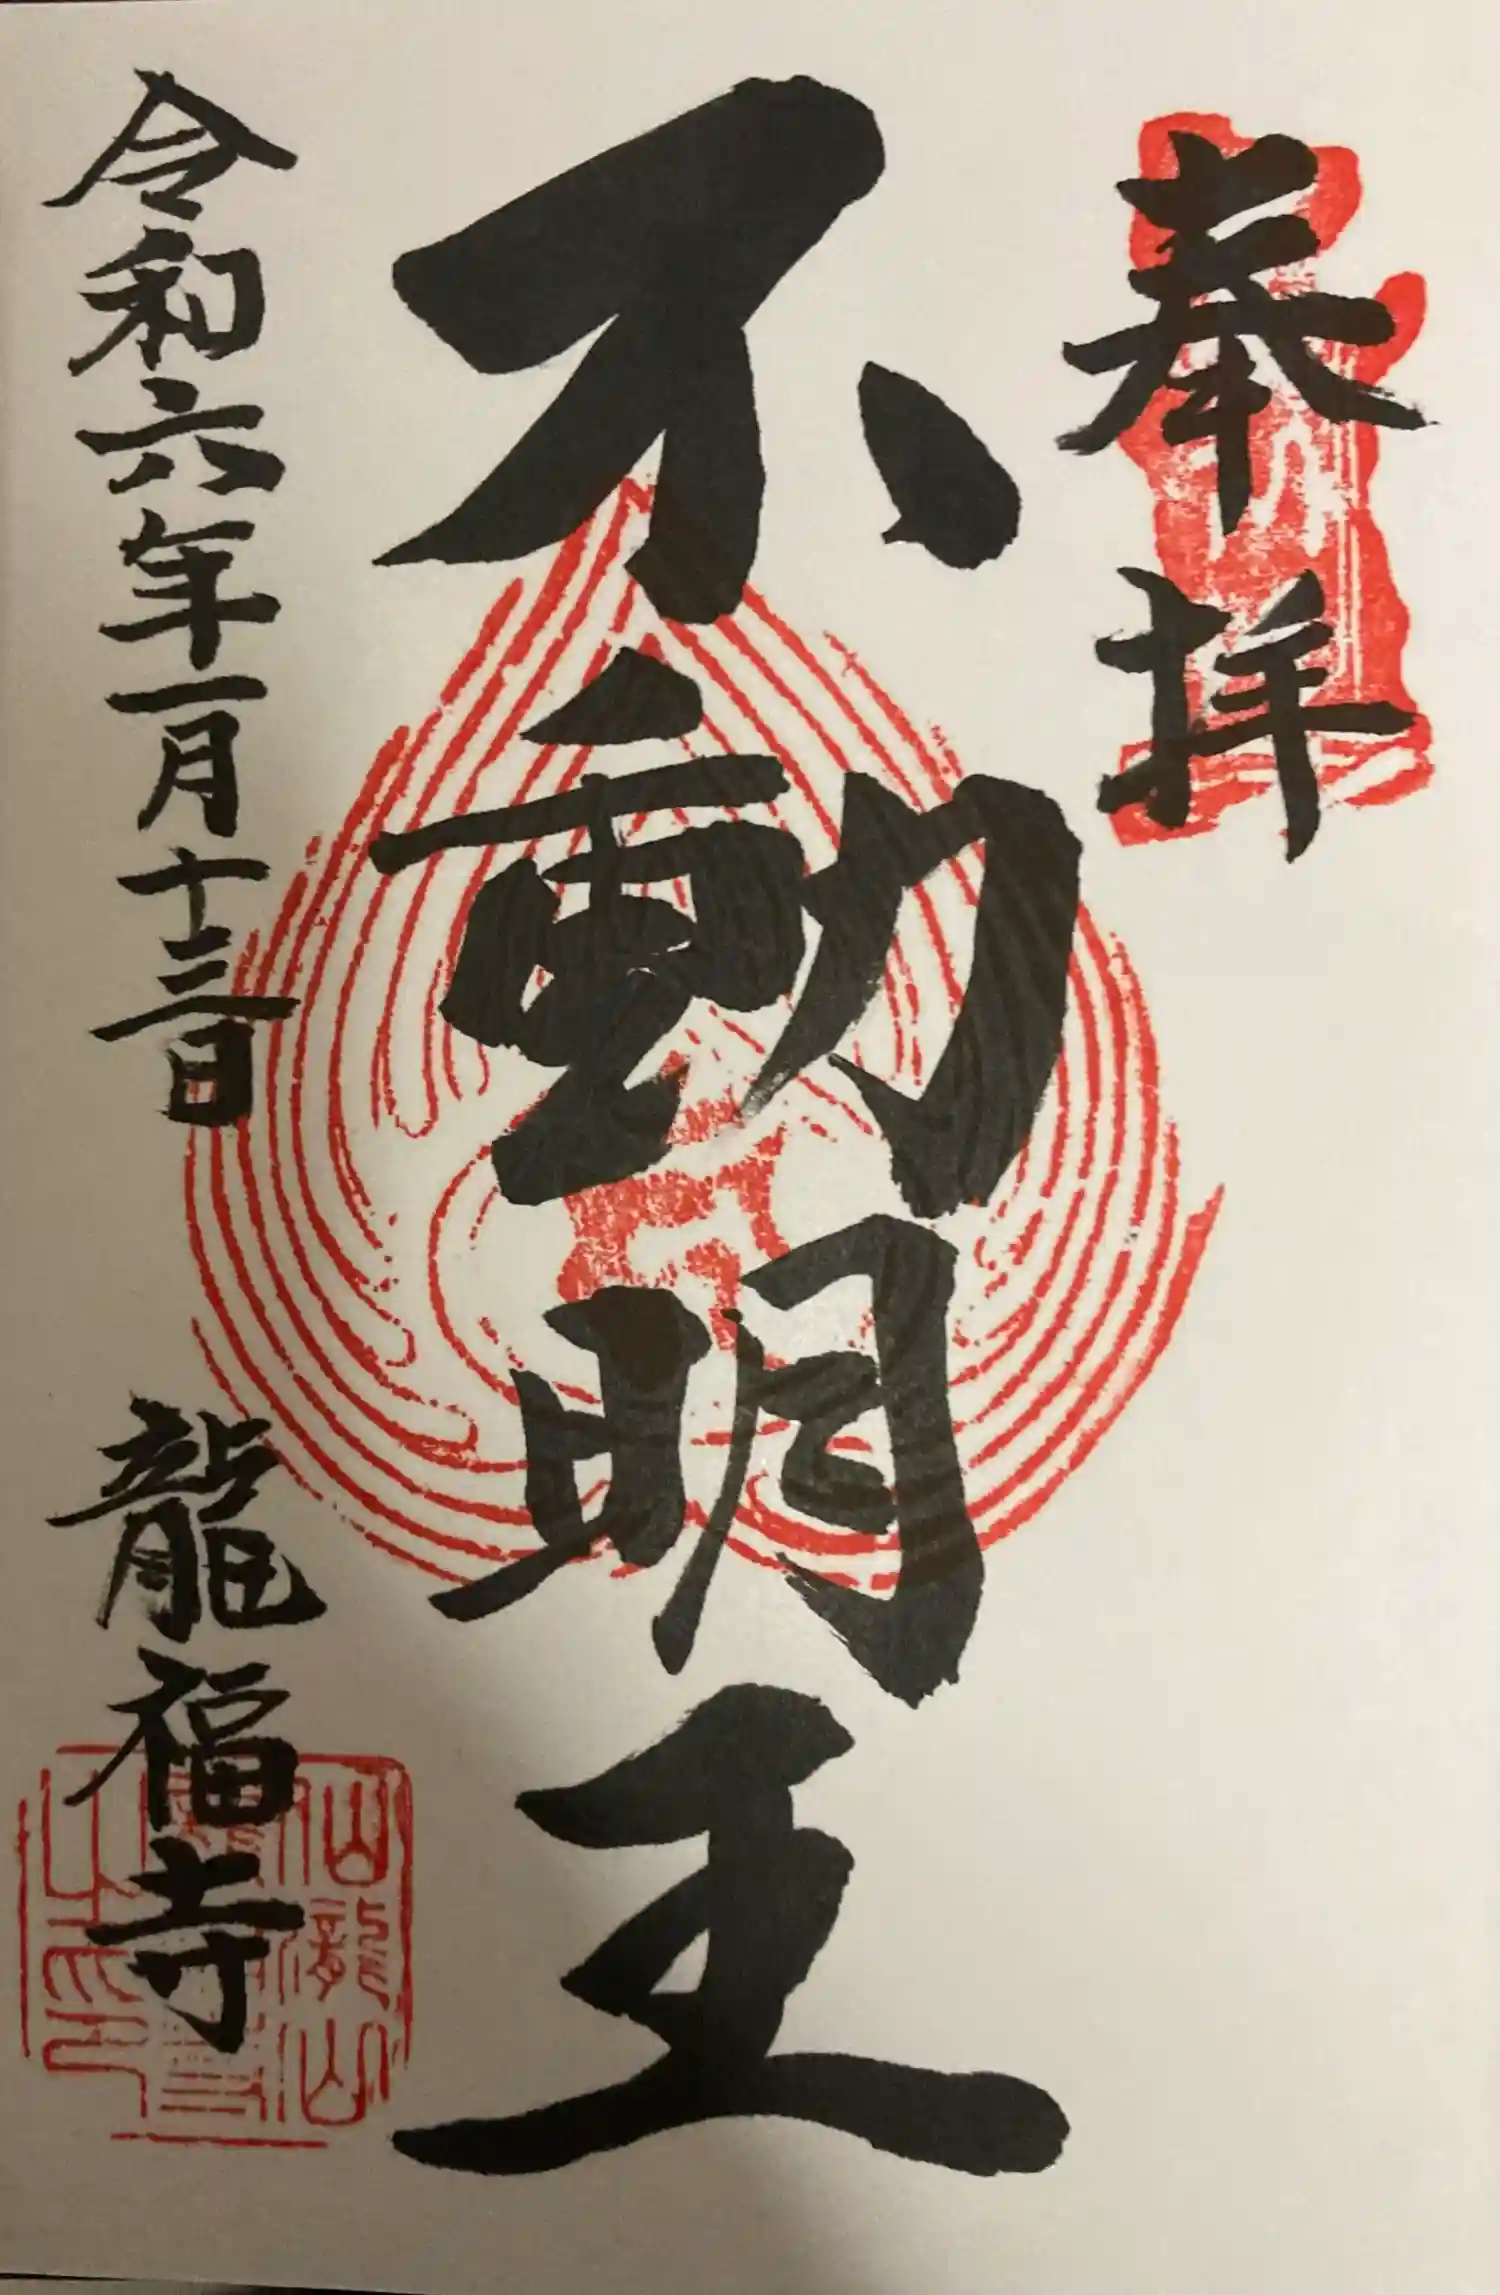 奉拝
不動明王
令和六年一月十三日
龍福寺